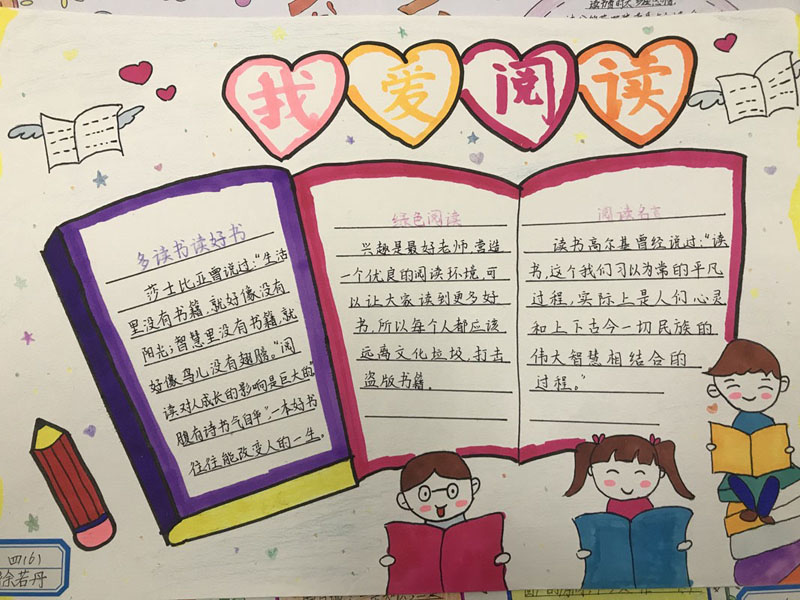 我爱阅读
多读书读好书
莎士比亚曾说过:“生活
里没有书籍,就好像没有
阳光;智慧里没有书籍,就
好像鸟儿没有翅膀。”阅
读对人成长的影响是巨大的“
腹有诗书气自华”,一本好书
往往能改变人的一生。
绿色阅读
兴趣是最好老师,营造
一个优良的阅读环境,可
以让大家读到更多好
书,所以每个人都应该
远离文化垃圾,打击
盗版书籍.
阅读名言
读书,高尔基曾经说过:“读
书,这个我们习以为常的平凡
过程,实际上是人们心灵
和上下古今一切民族的
伟大智慧相结合的
过程。”
四(6)
徐若丹